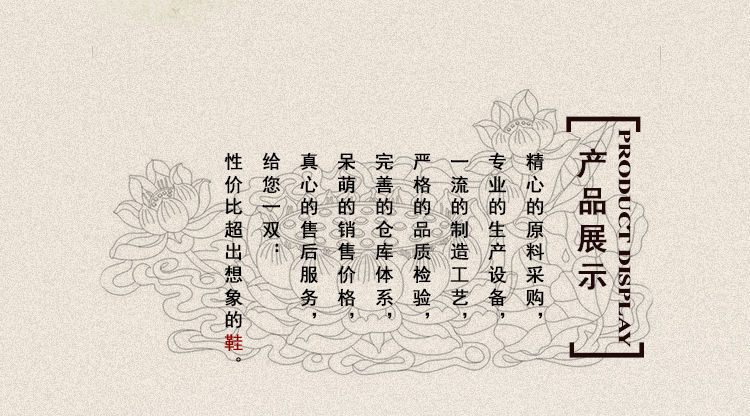 产品展示
PRODUCT DISPLAY
精心的原料采购，
专业的生产设备，
一流的制造工艺，
严格的品质检验，
完善的仓库体系，
呆萌的销售价格，
真心的售后服务，
给您一双：
性价比超出想象的鞋。